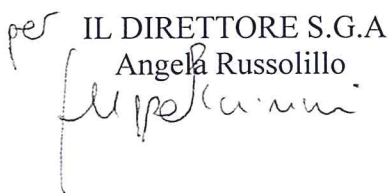 per IL DIRETTORE S.G.A
Angela Russolillo